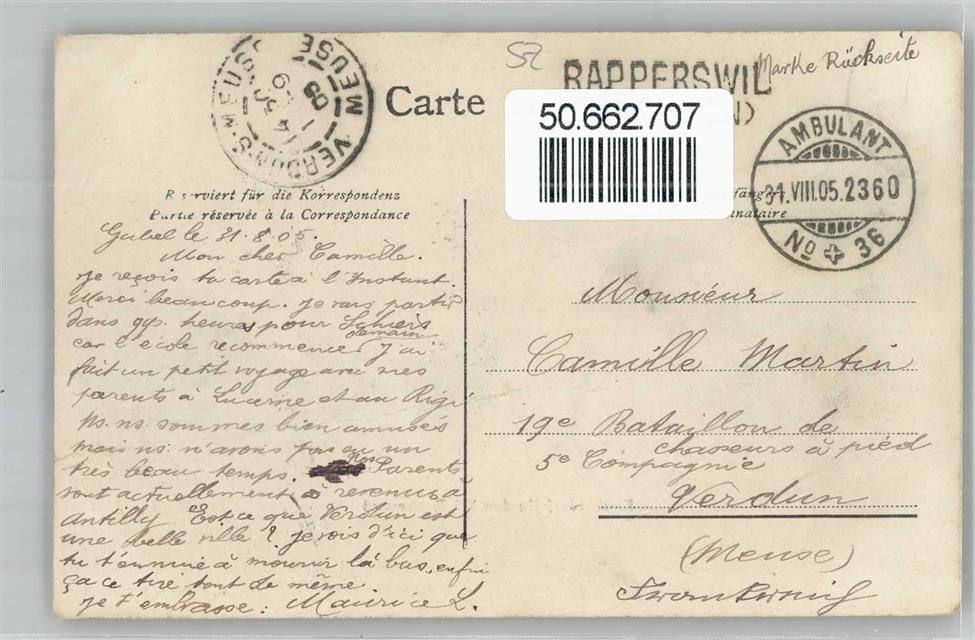 52
Marke Rückseite
RAPPERSWIL
Carte
50.662.707
VERDUN-S-MEUSE MEUSE
AMBULANT
31.VIII.05.2360
No 36
Reserviert für die Korrespondenz
Partie réservée à la Correspondance
Gubel le 31.8.05.
Mon cher Camille.
Je reçois ta carte à l'Instant.
Merci beaucoup. Je vais partir
dans qqs. heures pour Schiers
car l'école recommence demain J'ai
fait un petit voyage avec mes
parents à Lucerne et au Rigi
Ns. ns. sommes bien amusés
mais ns. n'avons pas eu un
très beau temps. Nos Parents
sont actuellement revenus à
Antilly Est-ce que Verdun est
une belle ville ? je vois d'ici que
tu t'ennuie à mourir là bas, enfin
ça ce tire tout de même
Je t'embrasse: Maurice L.
Monsieur
Camille Martin
19e Bataillon de
chasseurs à pied
5e Compagnie
Verdun
(Meuse)
Frankreich